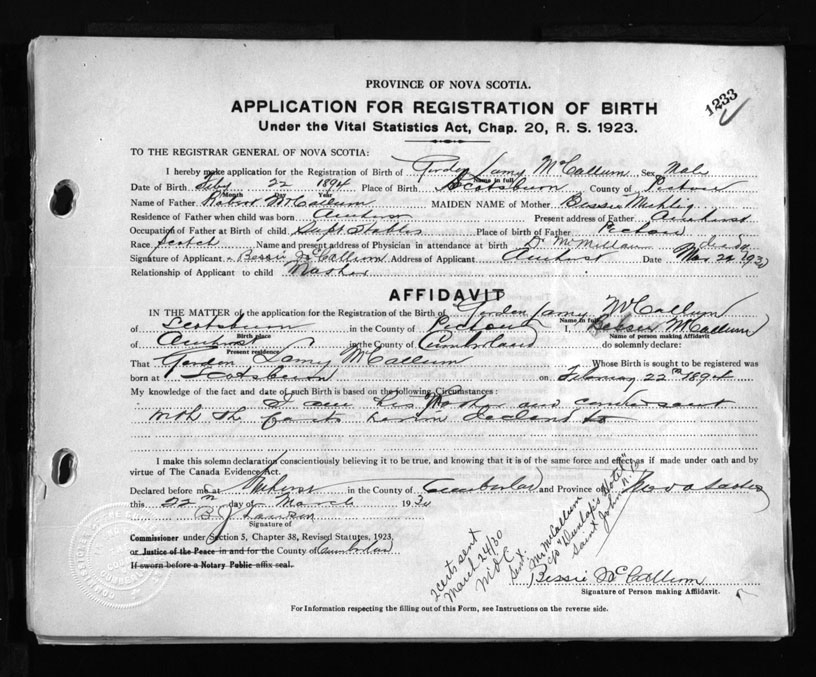 PROVINCE OF NOVA SCOTIA.
1233
APPLICATION FOR REGISTRATION OF BIRTH
Under the Vital Statistics Act, Chap. 20, R. S. 1923.
TO THE REGISTRAR GENERAL OF NOVA SCOTIA:
I hereby make application for the Registration of Birth of Gordon Lamy McCallum Sex Male
Name in full
Date of Birth Feby 22 1894 Place of Birth Scotsburn County of Pictou
Month Day Year
Name of Father Robert McCallum MAIDEN NAME of Mother Bessie
Residence of Father when child was born Amherst Present address of Father Amherst
Occupation of Father at Birth of child Supt Stables Place of birth of Father Pictou
Race Scotch Name and present address of Physician in attendance at birth Dr McMillan dead
Signature of Applicant Bessie McCallum Address of Applicant Amherst Date Mar 22 1930
Relationship of Applicant to child Mother
AFFIDAVIT
IN THE MATTER of the application for the Registration of the Birth of Gordon Lamy McCallum
Name in full
of Scotsburn in the County of Pictou I, Bessie McCallum
Birth place Name of person making Affidavit
of Amherst in the County of Cumberland do solemnly declare:
Present residence
That Gordon Lamy McCallum Whose Birth is sought to be registered was
born at Scotsburn on February 22nd 1894
My knowledge of the fact and date of such Birth is based on the following Circumstances:
I am his Mother and conversant
with the facts herein declared to
I make this solemn declaration conscientiously believing it to be true, and knowing that it is of the same force and effect as if made under oath and by
virtue of The Canada Evidence Act.
Declared before me at Amherst in the County of Cumberland and Province of Nova Scotia
this 22nd day of March 1930
Signature of
Commissioner under Section 5, Chapter 38, Revised Statutes, 1923.
or Justice of the Peace in and for the County of Cumberland
If sworn before a Notary Public affix seal.
2 certs sent
March 24/30
Sent.
Mr McCallum
c/o "Dunlap's Hotel"
Saint John N.B.
Bessie McCallum
Signature of Person making Affidavit.
For Information respecting the filling out of this Form, see Instructions on the reverse side.